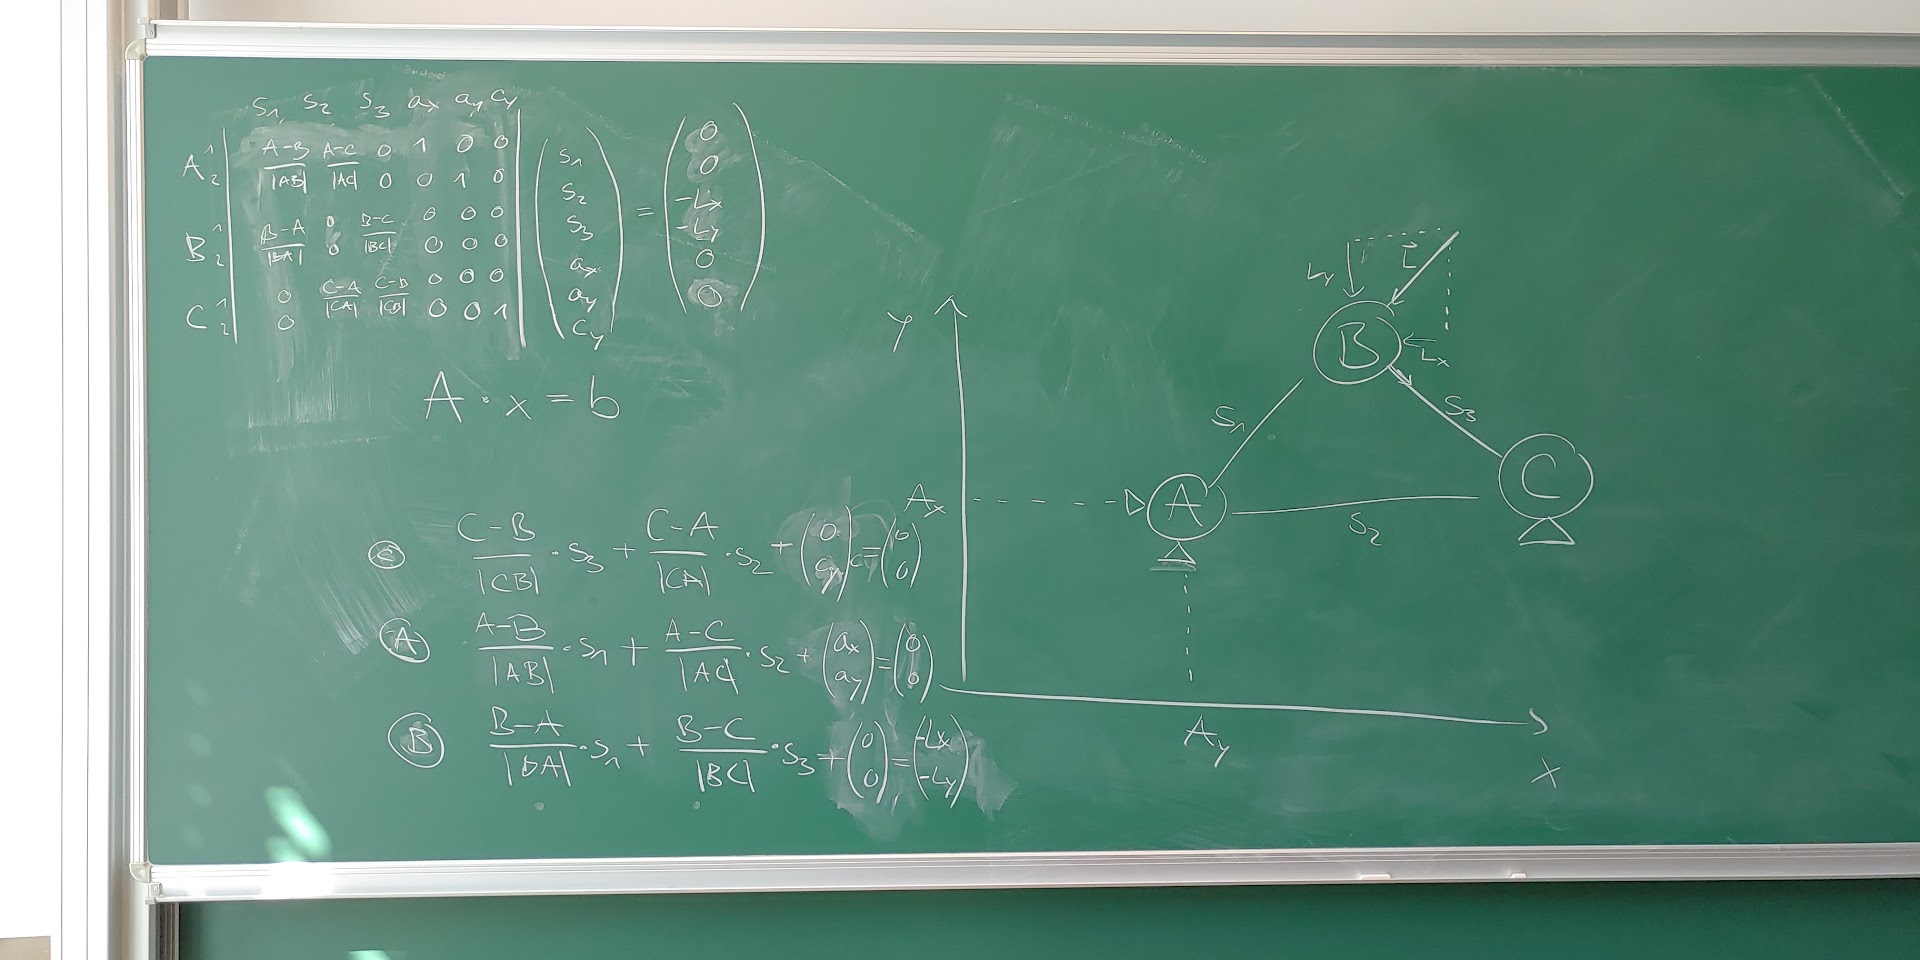 S₁ S₂ S₃ ax ay cy
A 1 A-B/|AB| A-C/|AC| 0 1 0 0
2 0 0 1 0
B 1 B-A/|BA| 0 B-C/|BC| 0 0 0
2 0 0 0 0
C 1 0 C-A/|CA| C-B/|CB| 0 0 0
2 0 0 0 1
(S₁ S₂ S₃ ax ay cy) = (0 0 -Lx -Ly 0 0)
A · x = b
C C-B/|CB| · S₃ + C-A/|CA| · S₂ + (0 cy) = (0 0)
A A-B/|AB| · S₁ + A-C/|AC| · S₂ + (ax ay) = (0 0)
B B-A/|BA| · S₁ + B-C/|BC| · S₃ + (0 0) = (-Lx -Ly)
Ly L
B
Lx
S₁ S₃
Y
C
Ax A
S₂
Ay
x